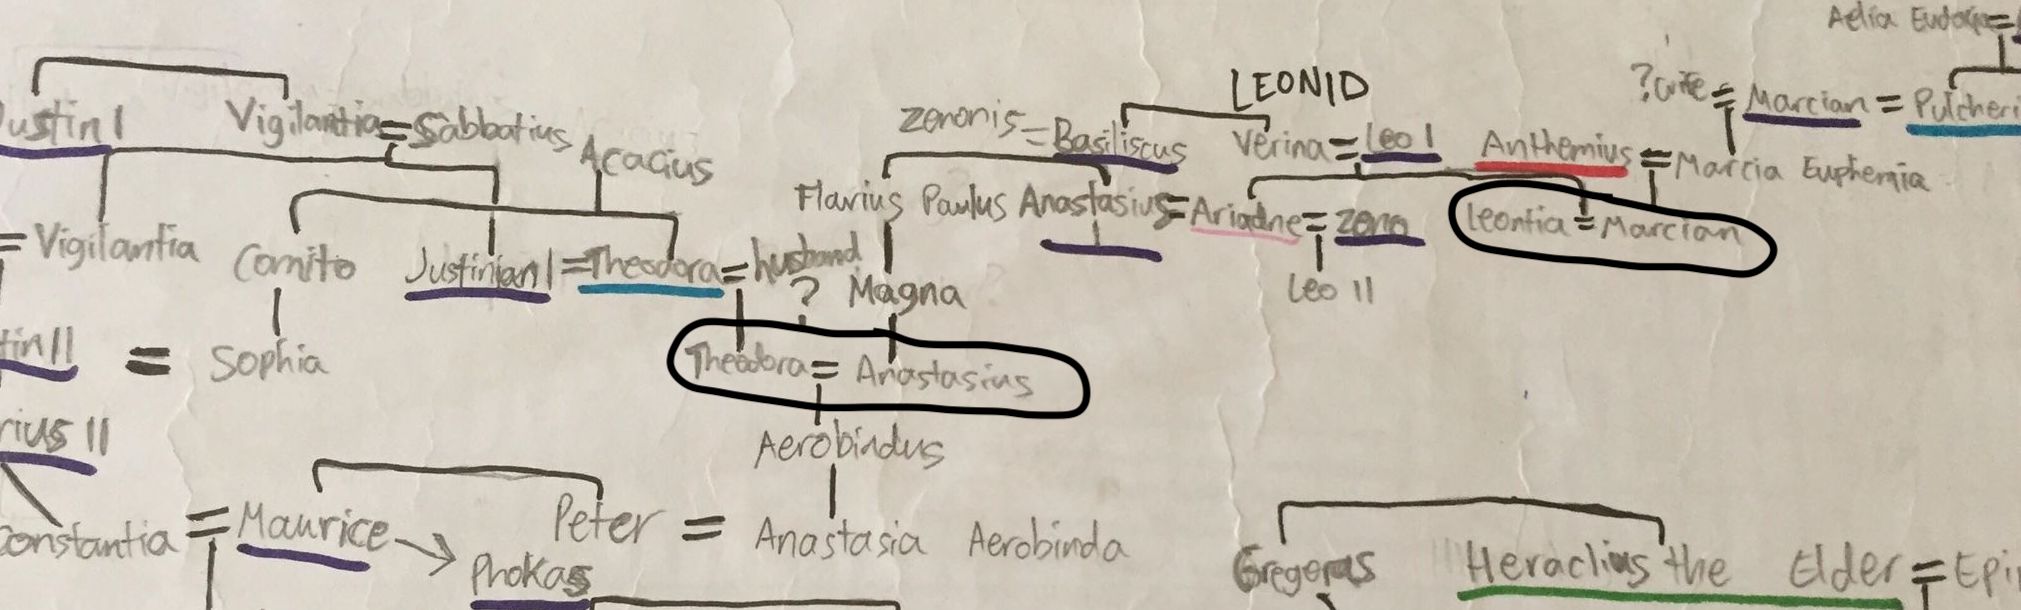 Aelia Eudoxia =
LEONID
?wife = Marcian = Pulcheri
ustin I Vigilantia = Sabbatius
Zenonis = Basiliscus Verina = Leo I Anthemius = Marcia Euphemia
Acacius
Flavius Paulus Anastasius = Ariadne = Zeno Leontia = Marcian
= Vigilantia Comito Justinian I = Theodora = husband
? Magna Leo II
tin II = Sophia Theodora = Anastasius
rius II Aerobindus
Constantia = Maurice → Peter = Anastasia Aerobinda
Phokas
Gregoras Heraclius the Elder = Epi